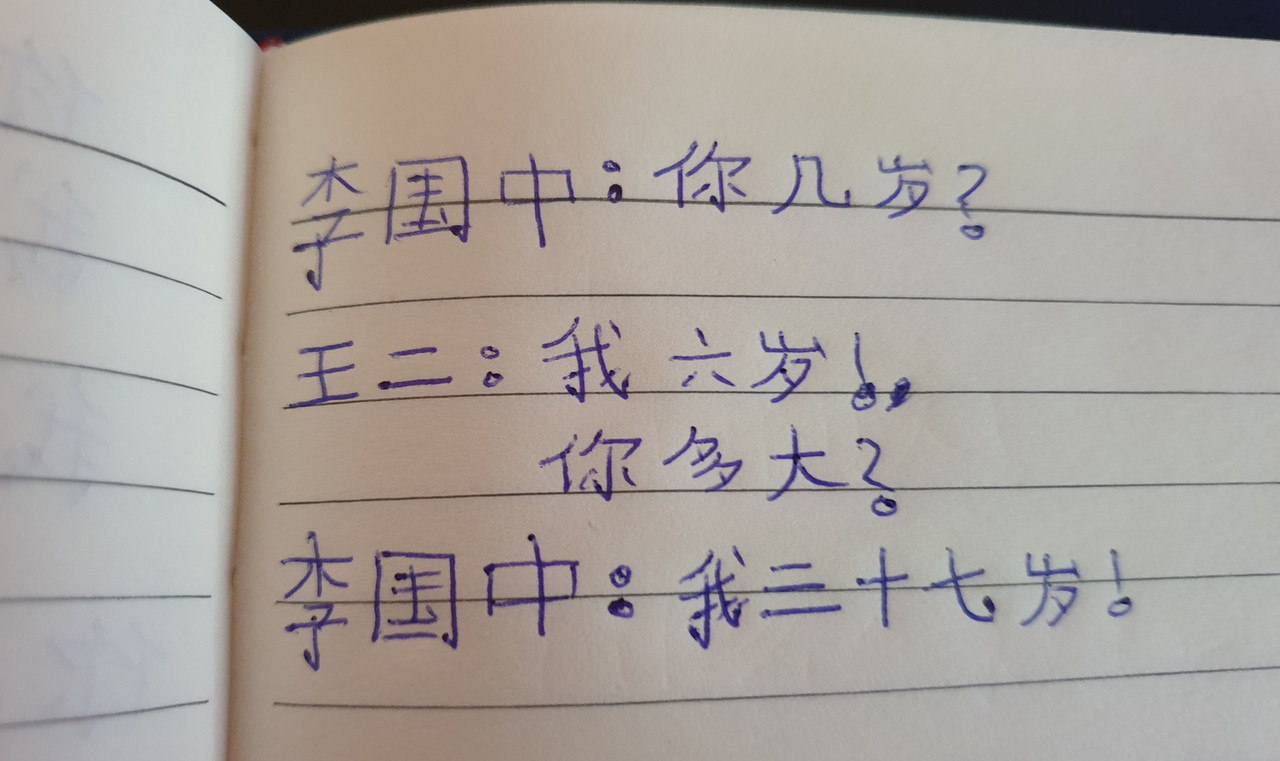 李国中：你几岁？
王二：我六岁！
你多大？
李国中：我三十七岁！